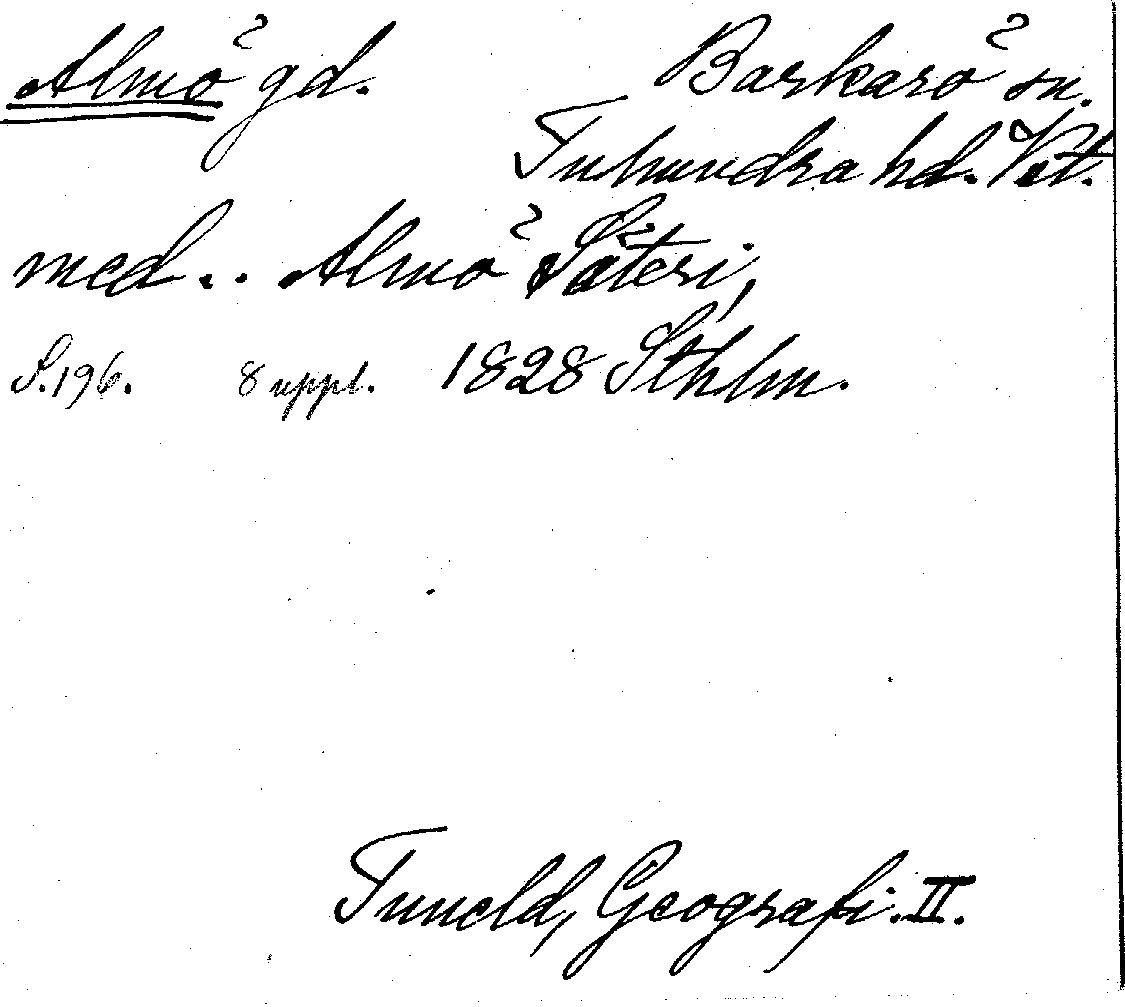 Almö gd. Barkarö sn.
Tuhundra hd. Vst.
med .. Almö Säteri,
S.196. 8 uppl. 1828 Sthlm.
Tuneld, Geografi. II.